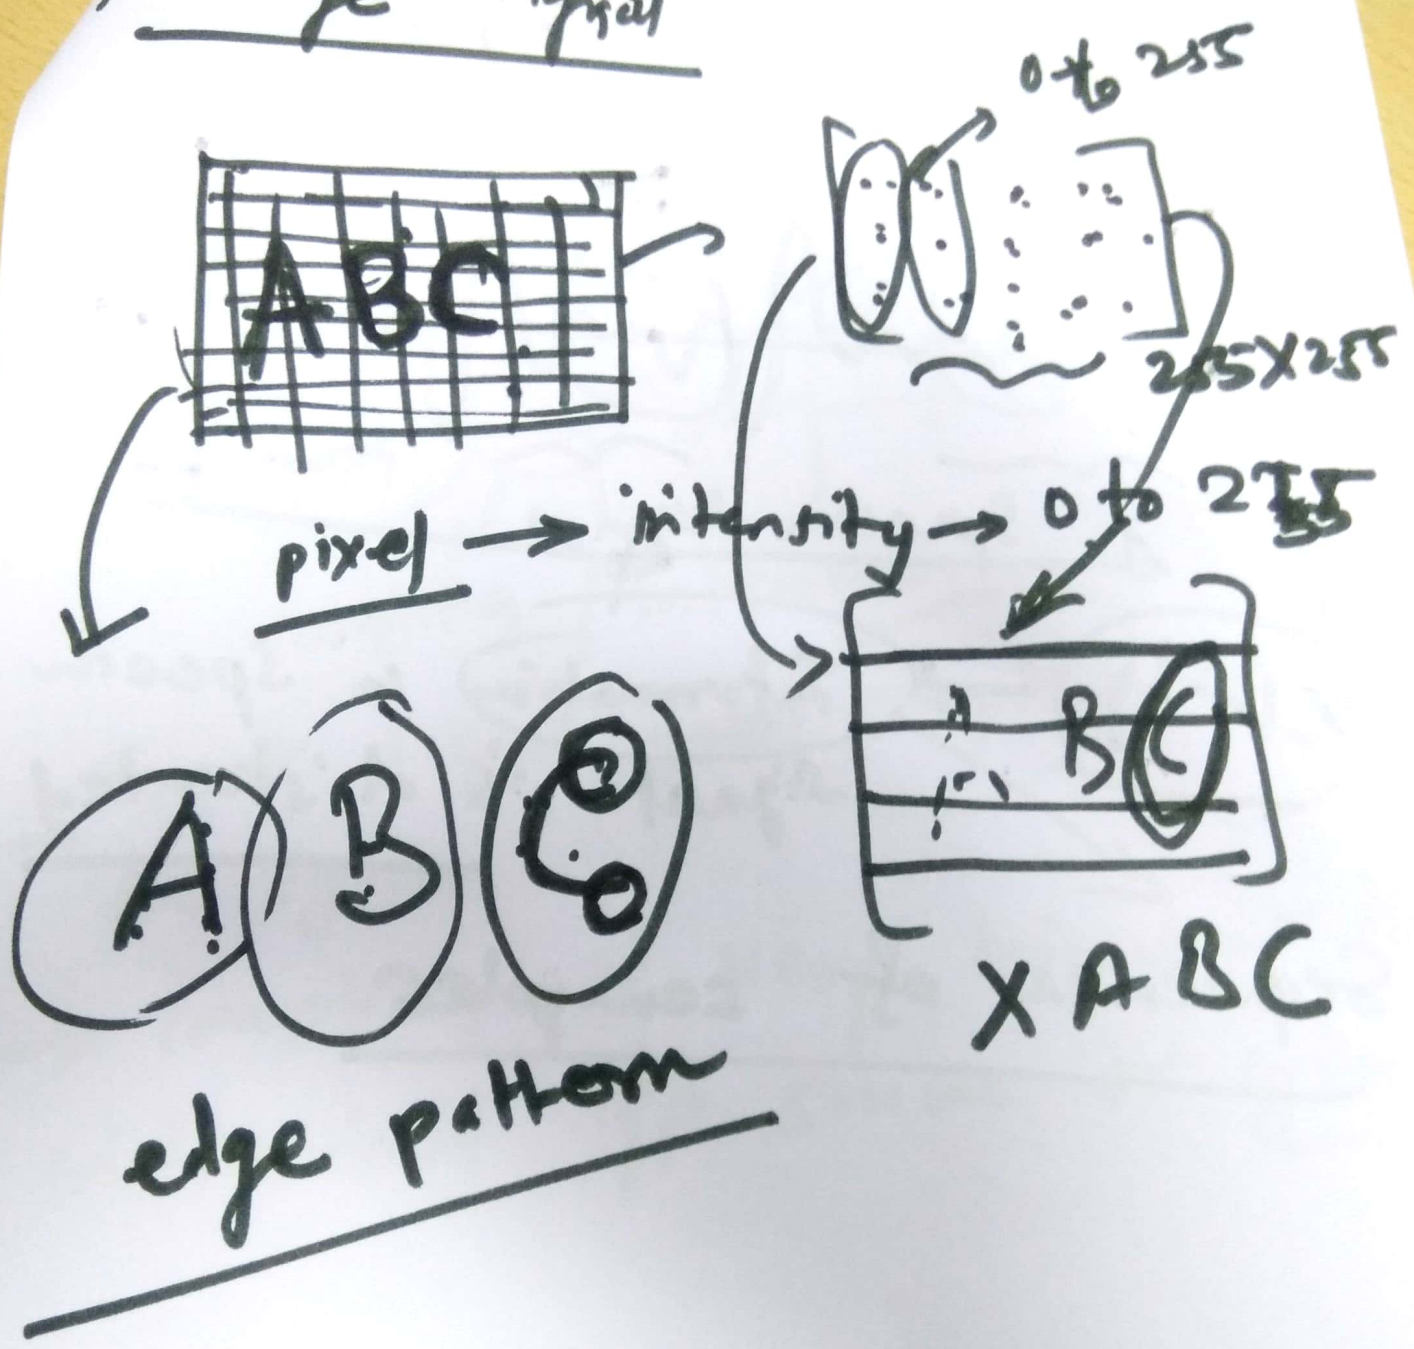 0 to 255
ABC
255X255
pixel → intensity → 0 to 255
A B C
B C
X A B C
edge pattern